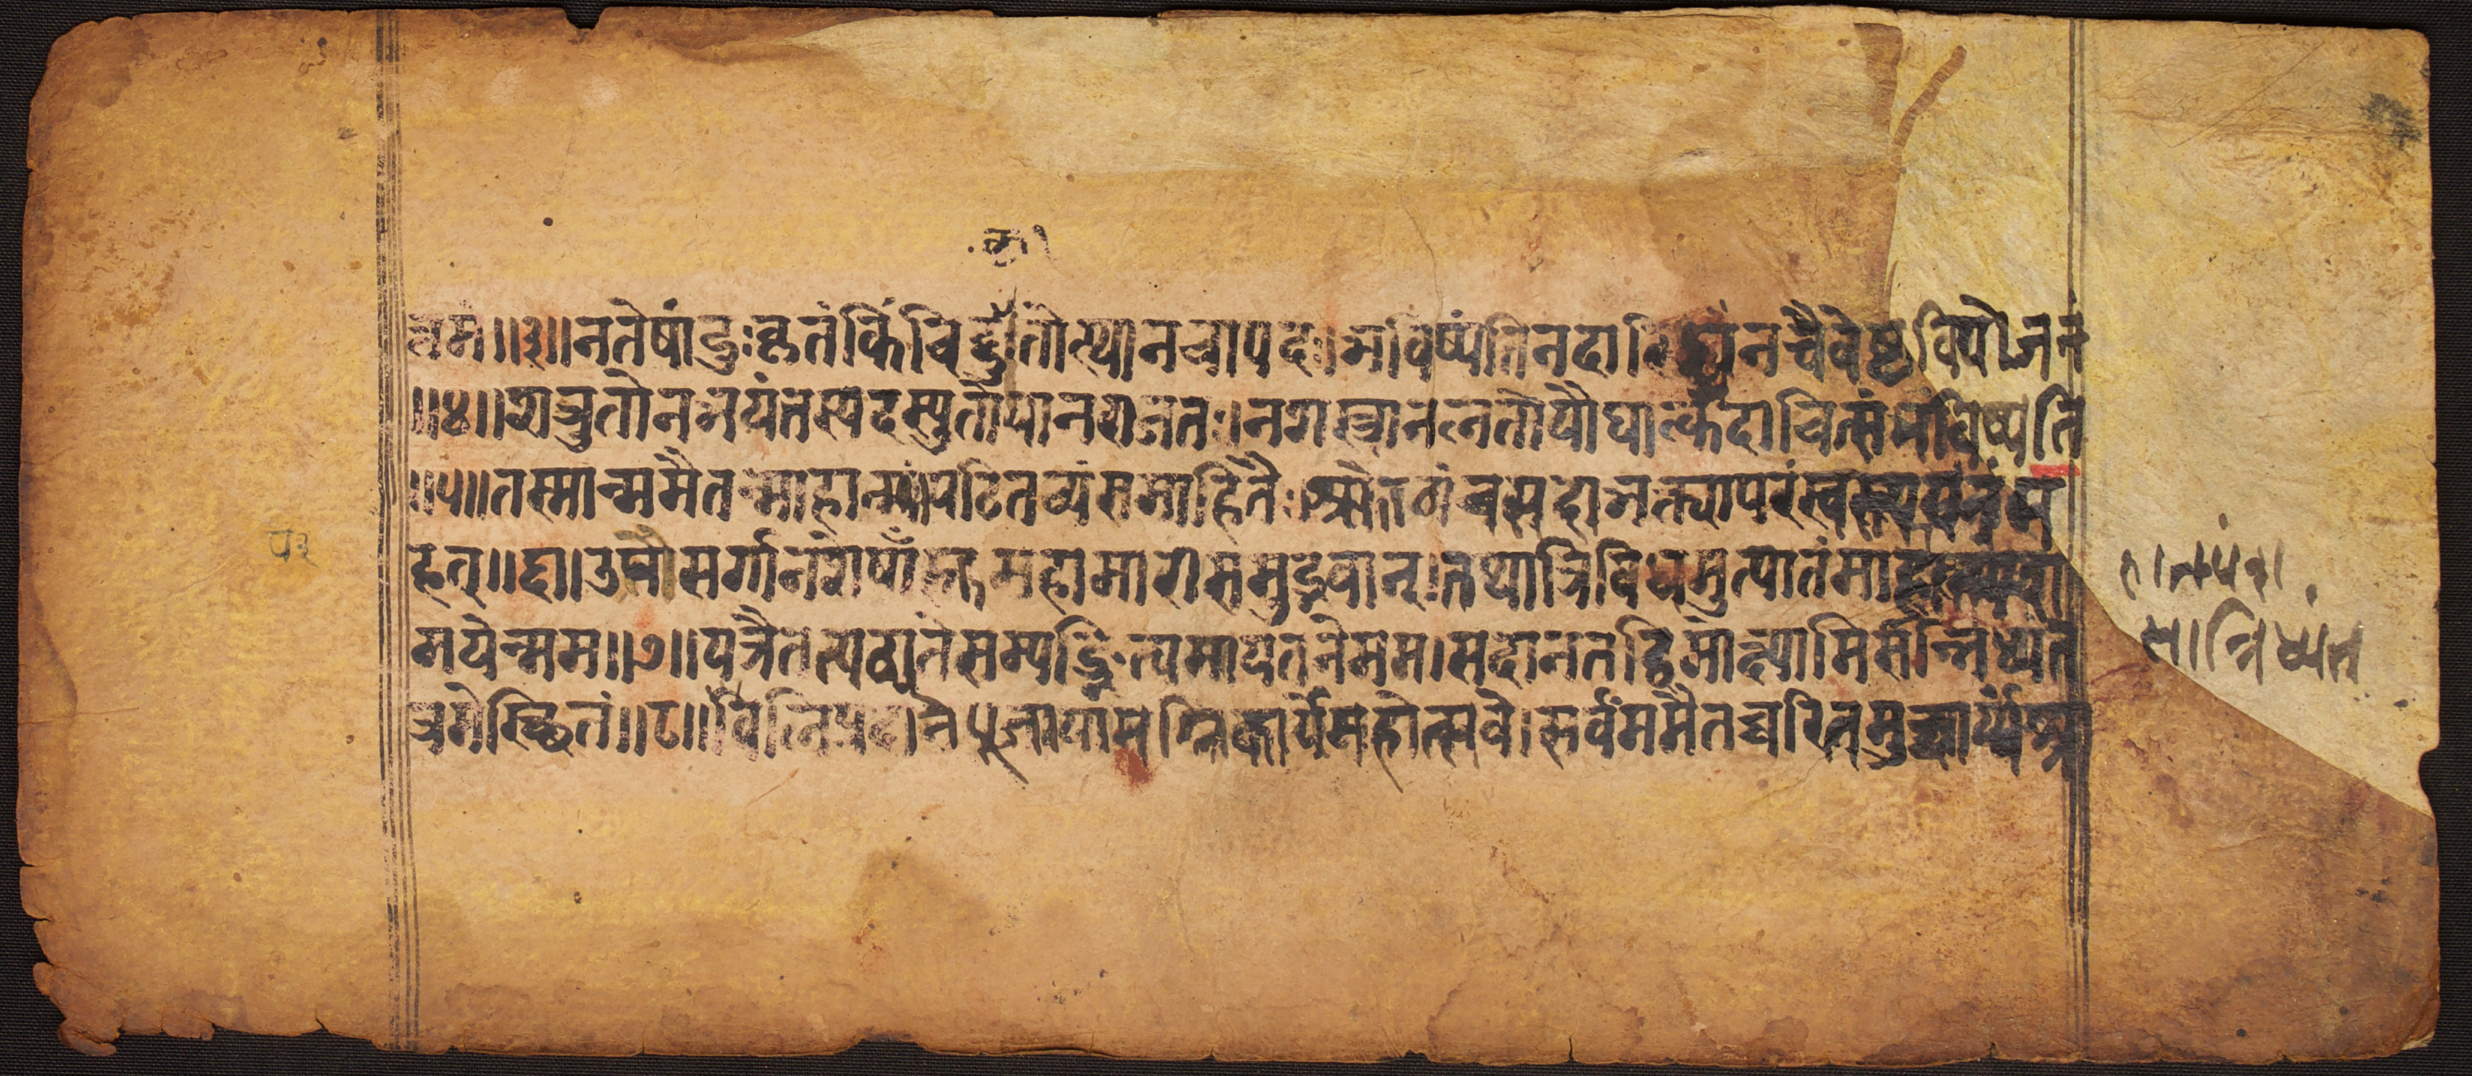 त्तमं॥३॥नतेषांदुःकृतंकिंचिद्दुःतोत्थानचापदः।भविष्यंतिनदारिद्र्यंनचैवेष्टवियोजनं
॥४॥शत्रुतोनभयंतस्यदस्युतोवानराजतः।नशस्त्रानलतोयौघात्कदाचित्संभविष्यति
॥५॥तस्मान्ममैतन्माहात्म्यंपठितव्यंसमाहितैः।श्रोतव्यंचसदाभक्त्यापरंस्वस्त्ययनंम
हत्॥६॥उपसर्गानशेषांस्तुमहामारीसमुद्भवान्।तथात्रिविधमुत्पातंमाहात्म्यंश
मयेन्मम॥७॥यत्रैतत्पठ्यतेसम्यङ्नित्यमायतनेमम।सदानतद्विमोक्ष्यामिसान्निध्यंत
त्रमेस्थितं॥८॥वलिप्रदानेपूजायामग्निकार्येमहोत्सवे।सर्वंममैतच्चरितमुच्चार्यंश्रा
५३
सान्निध्यंत